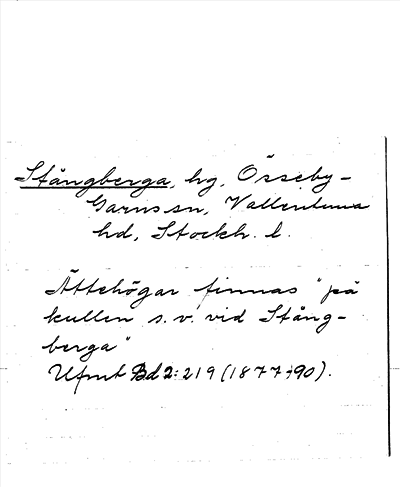 Stångberga, hg, Össeby-
Garns sn, Vallentuna
hd, Stockh. l.
Ättehögar finnas "på
kullen s.v. vid Stång-
berga"
Ufmt Bd 2: 219 (1877-90).